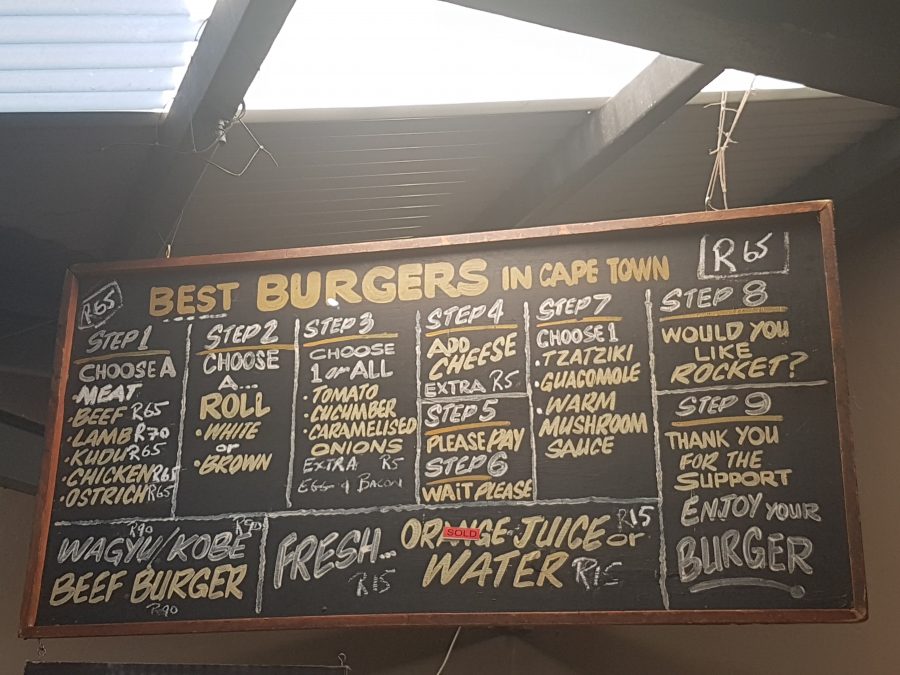 R65
BEST BURGERS IN CAPE TOWN
R65
STEP 1
CHOOSE A
MEAT
• BEEF R65
• LAMB R70
• KUDU R65
• CHICKEN R65
• OSTRICH R65
STEP 2
CHOOSE
A...
ROLL
• WHITE
or
• BROWN
STEP 3
CHOOSE
1 or ALL
• TOMATO
• CUCUMBER
• CARAMELISED
ONIONS
EXTRA R5
EGG & BACON
STEP 4
ADD
CHEESE
EXTRA R5
STEP 5
PLEASE PAY
STEP 6
WAIT PLEASE
STEP 7
CHOOSE 1
• TZATZIKI
• GUACOMOLE
• WARM
MUSHROOM
SAUCE
STEP 8
WOULD YOU
LIKE
ROCKET?
STEP 9
THANK YOU
FOR THE
SUPPORT
ENJOY YOUR
BURGER
R90 R90
WAGYU/KOBE
BEEF BURGER
R90
FRESH... ORANGE-JUICE or R15
SOLD
R15 WATER R15